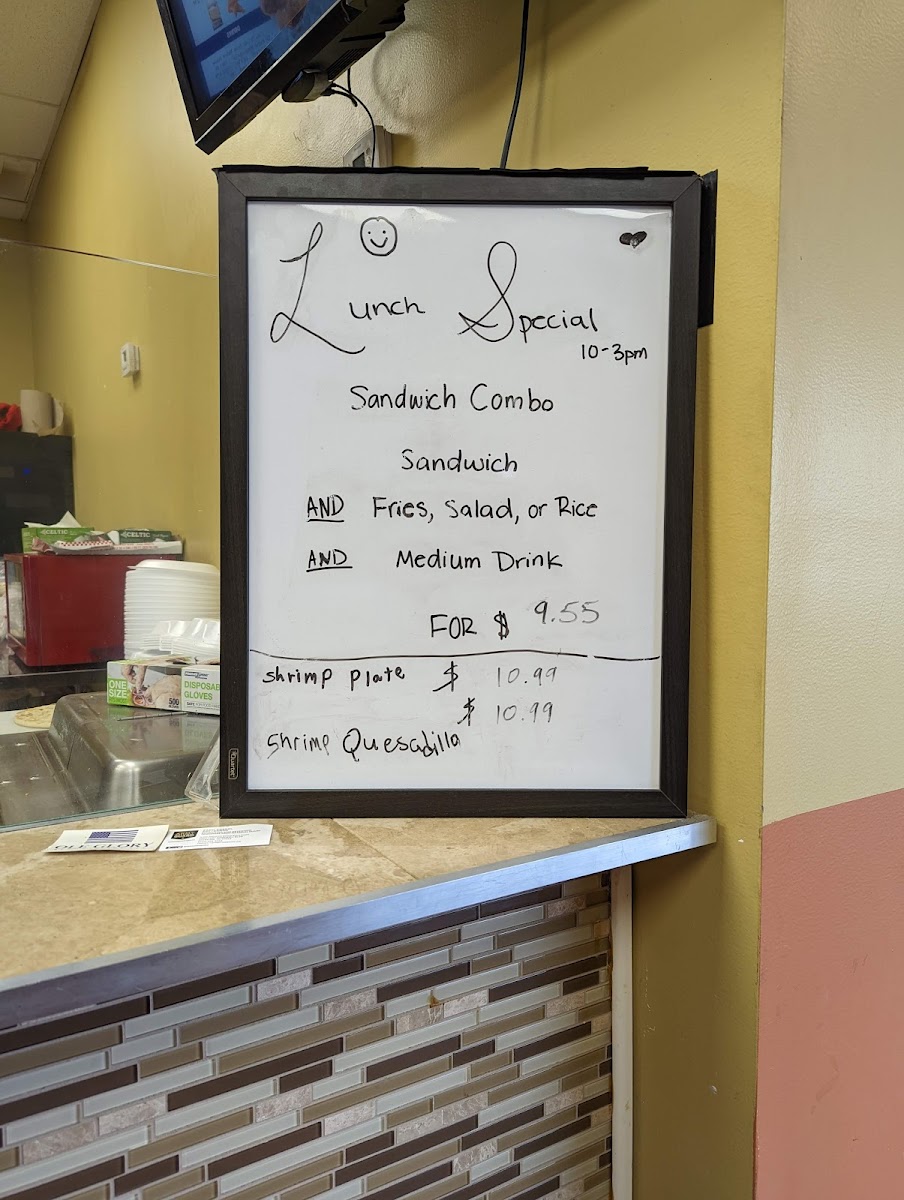 Lunch Special
10-3pm
Sandwich Combo
Sandwich
AND Fries, Salad, or Rice
AND Medium Drink
FOR $ 9.55
shrimp plate $ 10.99
$ 10.99
shrimp Quesadilla
Quartet
CELTIC
CELTIC
ONE SIZE
DISPOSABLE
GLOVES
500
OLE GLORY